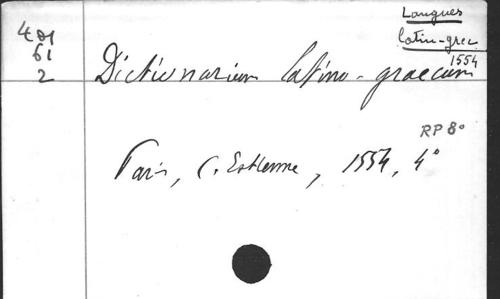 Langues
latin-grec
1554
401
61
2
Dictionarium latino-graecum
RP 8°
Paris, C. Estienne, 1554, 4°